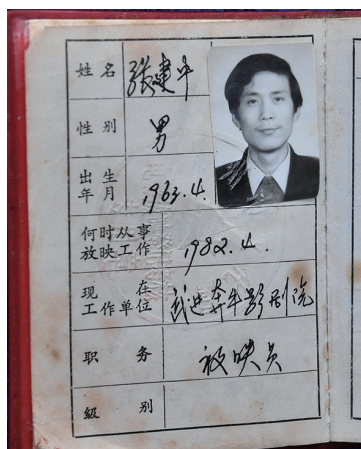 姓名 张建中
性别 男
出生
年月 1963.4.
何时从事
放映工作 1982.4.
现在
工作单位 武进奔牛影剧院
职务 放映员
级别